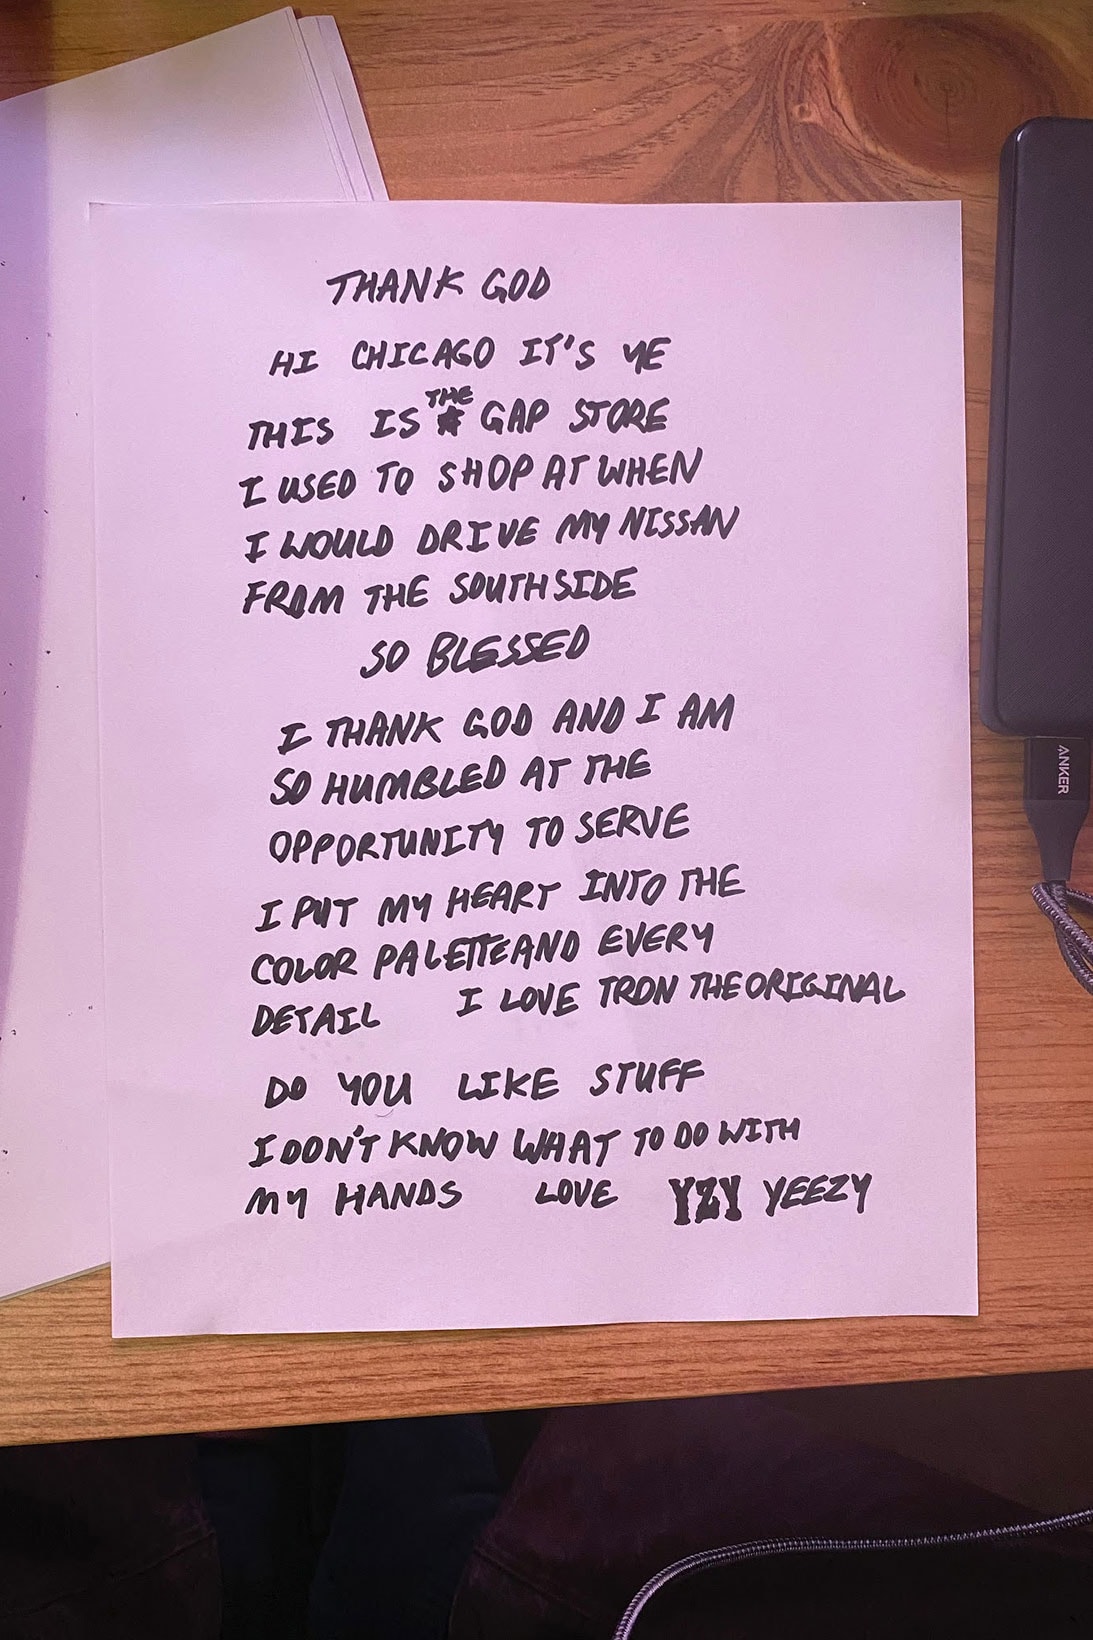 THANK GOD
HI CHICAGO IT'S YE
THIS IS THE GAP STORE
I USED TO SHOP AT WHEN
I WOULD DRIVE MY NISSAN
FROM THE SOUTHSIDE
SO BLESSED
I THANK GOD AND I AM
SO HUMBLED AT THE
OPPORTUNITY TO SERVE
I PUT MY HEART INTO THE
COLOR PALETTE AND EVERY
DETAIL I LOVE TRON THE ORIGINAL
DO YOU LIKE STUFF
I DON'T KNOW WHAT TO DO WITH
MY HANDS LOVE YZY YEEZY
ANKER